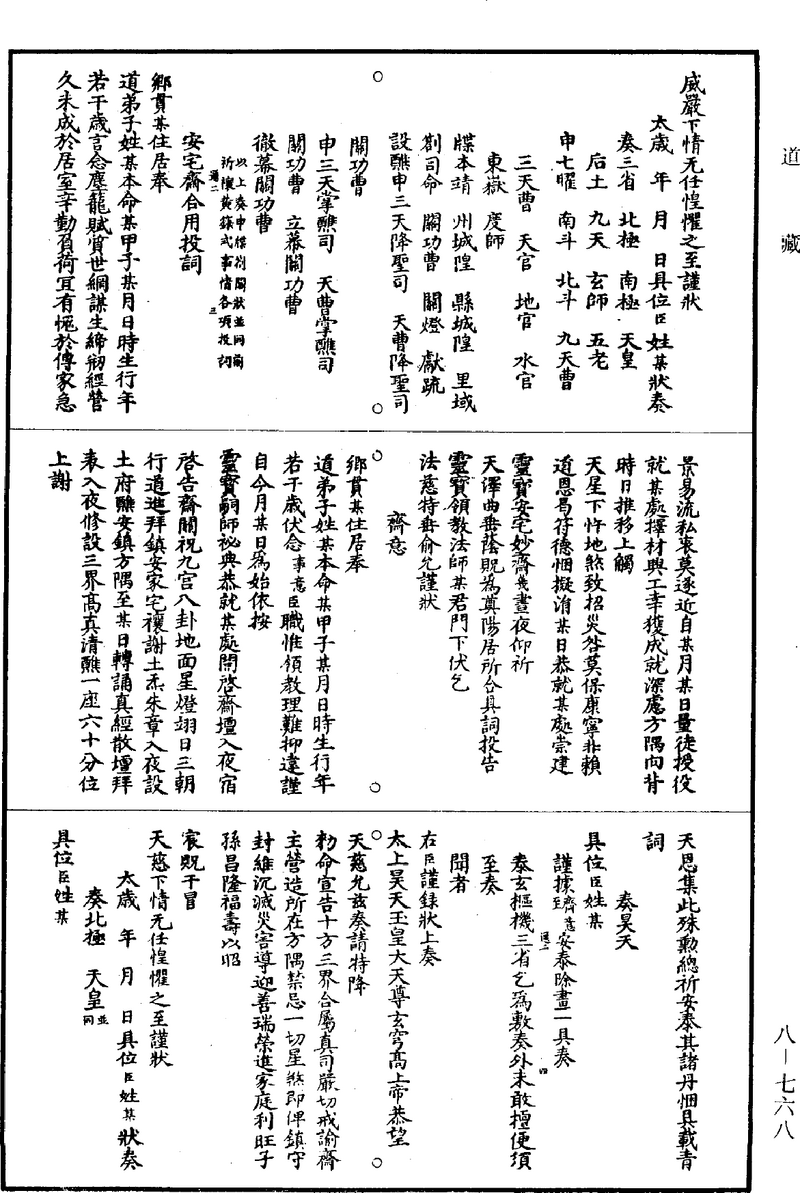 道藏
威嚴下情无任惶懼之至謹狀
太歲 年 月 日具位臣姓某狀奏
奏三省 北極 南極 天皇
后土 九天 玄師 五老
申七曜 南斗 北斗 九天曹
三天曹 天官 地官 水官
東嶽 度師
牒本靖 州城隍 縣城隍 里域
劄司命 關功曹 關燈 獻疏
設醮申三天降聖司 天曹降聖司
關功曹
申三天掌醮司 天曹掌醮司
關功曹 立幕關功曹
徹幕關功曹
以上奏申牒劄關狀並同前
祈禳黃籙式事情各項投詞
安宅齋合用投詞
鄉貫某住居奉
道弟子姓某本命某甲子某月日時生行年
若干歲言念塵籠賦質世網謀生締剏經營
久未成於居室辛勤負荷冝有愧於傳家急
景易流私衷莫遂近自某月某日量徒授役
就某處擇材興工幸獲成就深慮方隅向背
時日推移上觸
天星下忤地煞致招災咎莫保康寧非賴
道恩曷符德悃擬消某日恭就某處崇建
靈寶安宅妙齋幾晝夜仰祈
天澤曲垂蔭貺爲奠陽居所合具詞投告
靈寶領教法師某君門下伏乞
法慈特垂俞允謹狀
齋意
鄉貫某住居奉
道弟子姓某本命某甲子某月日時生行年
若干歲伏念事意臣職惟領教理難抑違謹
自今月某日爲始依按
靈寶嗣師祕典恭就某處開啓齋壇入夜宿
啓告齋關祝九宮八卦地面星燈翊日三朝
行道進拜鎮安家宅禳謝土炁朱章入夜設
土府醮安鎮方隅至某日轉誦真經散壇拜
表入夜修設三界高真清醮一座六十分位
上謝
天恩集此殊勳總祈安泰其諸丹悃具載青
詞
奏昊天
具位臣姓某
謹據至齋意安泰除畫一具奏
泰玄樞機三省乞爲敷奏外未敢擅便須
至奏
聞者
右臣謹錄狀上奏
太上昊天玉皇大天尊玄穹高上帝恭望
天慈允兹奏請特降
勑命宣告十方三界合屬真司嚴切戒諭齋
主營造所在方隅禁忌一切星煞即俾鎮守
封維沉滅災害導迎善瑞榮進家庭利旺子
孫昌隆福壽以昭
宸貺干冒
天慈下情无任惶懼之至謹狀
太歲 年 月 日具位臣姓某狀奏
奏北極 天皇並同
具位臣姓某
八－七六八